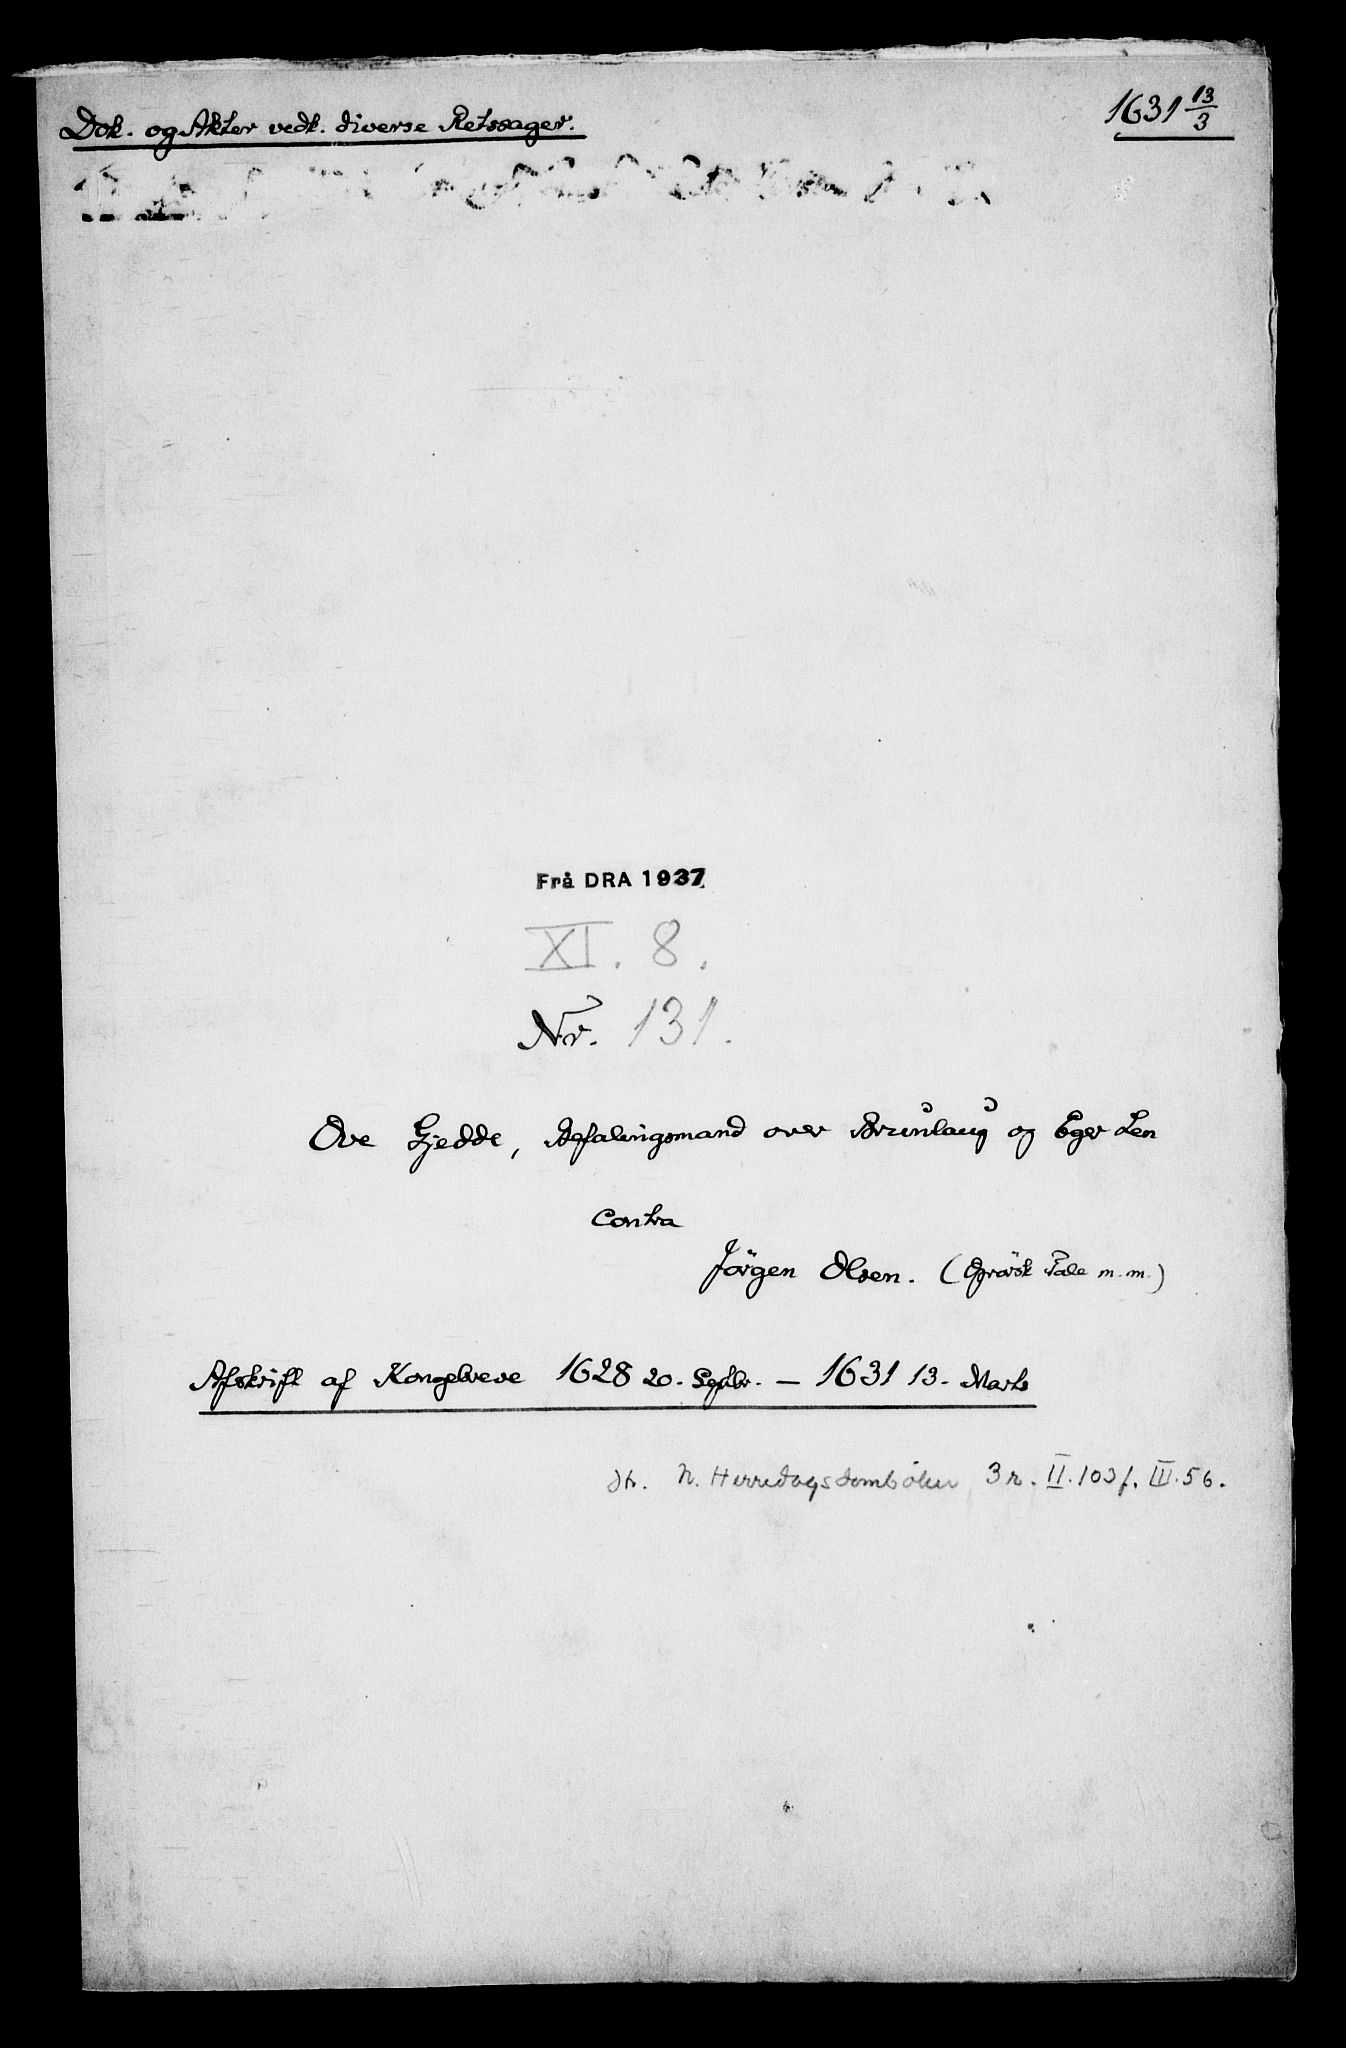 Dok. og Akter vedk. diverse Retssager.
1631 13/3
Frå DRA 1937
XI. 8.
Nr. 131.
Ove Gjedde, Befalingsmand over Brunlaug og Eger Len
Contra
Jörgen Olsen. (Oprørsk Tale m.m.)
Afskrift af Kongebreve 1628 20. Septbr. - 1631 13. Marts
N. Herredagsdombøker 3 R. II. 103 f. III. 56.